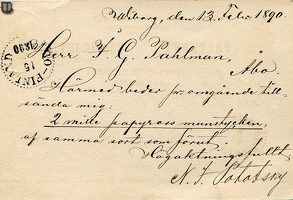 Wiborg, den 13. Febr 1890.
Herr F. G. Pahlman,
Åbo.
Härmed beder pr omgående till-
sända mig:
2 mille papyross munstycken,
af samma sort som förut.
Högaktningsfullt
N. F. Pototsky
15
1890